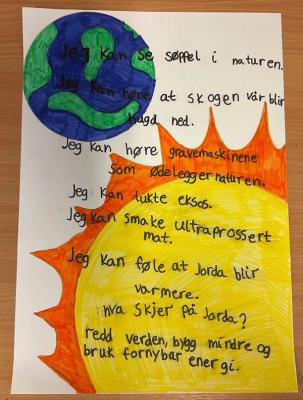 Jeg kan se søppel i naturen.
Jeg kan høre at skogen vår blir
hugd ned.
Jeg kan høre gravemaskinene
som ødelegger naturen.
Jeg kan lukte eksos.
Jeg kan smake ultraprossert
mat.
Jeg kan føle at Jorda blir
varmere.
Hva skjer på Jorda?
redd verden, bygg mindre og
bruk fornybar energi.